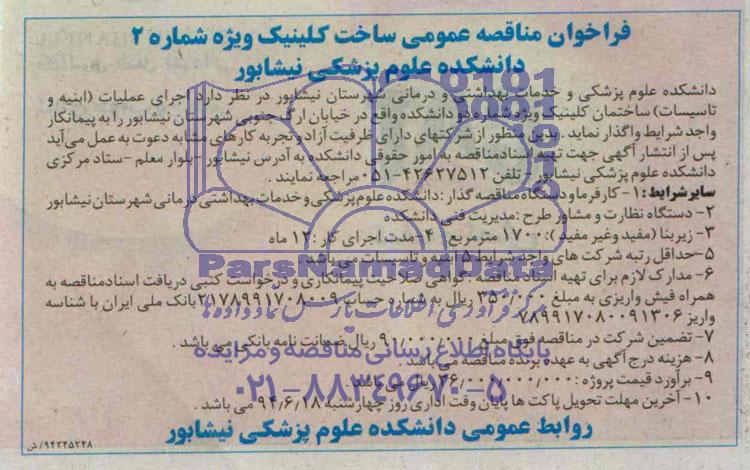 فراخوان مناقصه عمومی ساخت کلینیک ویژه شماره ۲
دانشکده علوم پزشکی نیشابور
دانشکده علوم پزشکی و خدمات بهداشتی و درمانی شهرستان نیشابور در نظر دارد اجرای عملیات (ابنیه و
تاسیسات) ساختمان کلینیک ویژه شماره دو دانشکده واقع در خیابان ارگ جنوبی شهرستان نیشابور را به پیمانکار
واجد شرایط واگذار نماید . بدین منظور از شرکتهای دارای ظرفیت آزاد و تجربه کارهای مشابه دعوت به عمل می آید
پس از انتشار آگهی جهت تهیه اسناد مناقصه به امور حقوقی دانشکده به آدرس نیشابور -بلوار معلم -ستاد مرکزی
دانشکده علوم پزشکی نیشابور - تلفن ۴۲۶۲۷۵۱۲-۰۵۱ مراجعه نمایند .
سایر شرایط: ۱- کارفرما و دستگاه مناقصه گذار : دانشکده علوم پزشکی و خدمات بهداشتی درمانی شهرستان نیشابور
۲- دستگاه نظارت و مشاور طرح : مدیریت فنی دانشکده
۳- زیربنا (مفید وغیر مفید) : ۱۷۰۰ مترمربع ۴-مدت اجرای کار : ۱۲ ماه
۵-حداقل رتبه شرکت های واجد شرایط ۵ ابنیه و تاسیسات می باشد
۶- مدارک لازم برای تهیه اسناد مناقصه : گواهی صلاحیت پیمانکاری و درخواست کتبی دریافت اسناد مناقصه به
همراه فیش واریزی به مبلغ ۳۵۰/۰۰۰ ریال به شماره حساب ۲۱۷۸۹۹۱۷۰۸۰۰۹ بانک ملی ایران با شناسه
واریز ۷۸۹۹۱۷۰۸۰۰۹۱۳۰۶
۷- تضمین شرکت در مناقصه فوق مبلغ ۹۰۱/۰۰۰/۰۰۰ ریال ضمانت نامه بانکی می باشد .
۸- هزینه درج آگهی به عهده برنده مناقصه می باشد .
۹- برآورد قیمت پروژه : ریال می باشد
۱۰- آخرین مهلت تحویل پاکت ها پایان وقت اداری روز چهارشنبه ۹۴/۶/۱۸ می باشد .
روابط عمومی دانشکده علوم پزشکی نیشابور
۹۴۲۴۵۲۴۸/ش
ParsNamadData
پایگاه اطلاع رسانی مناقصه و مزایده
۰۲۱-۸۸۳۴۹۶۷۰-۵